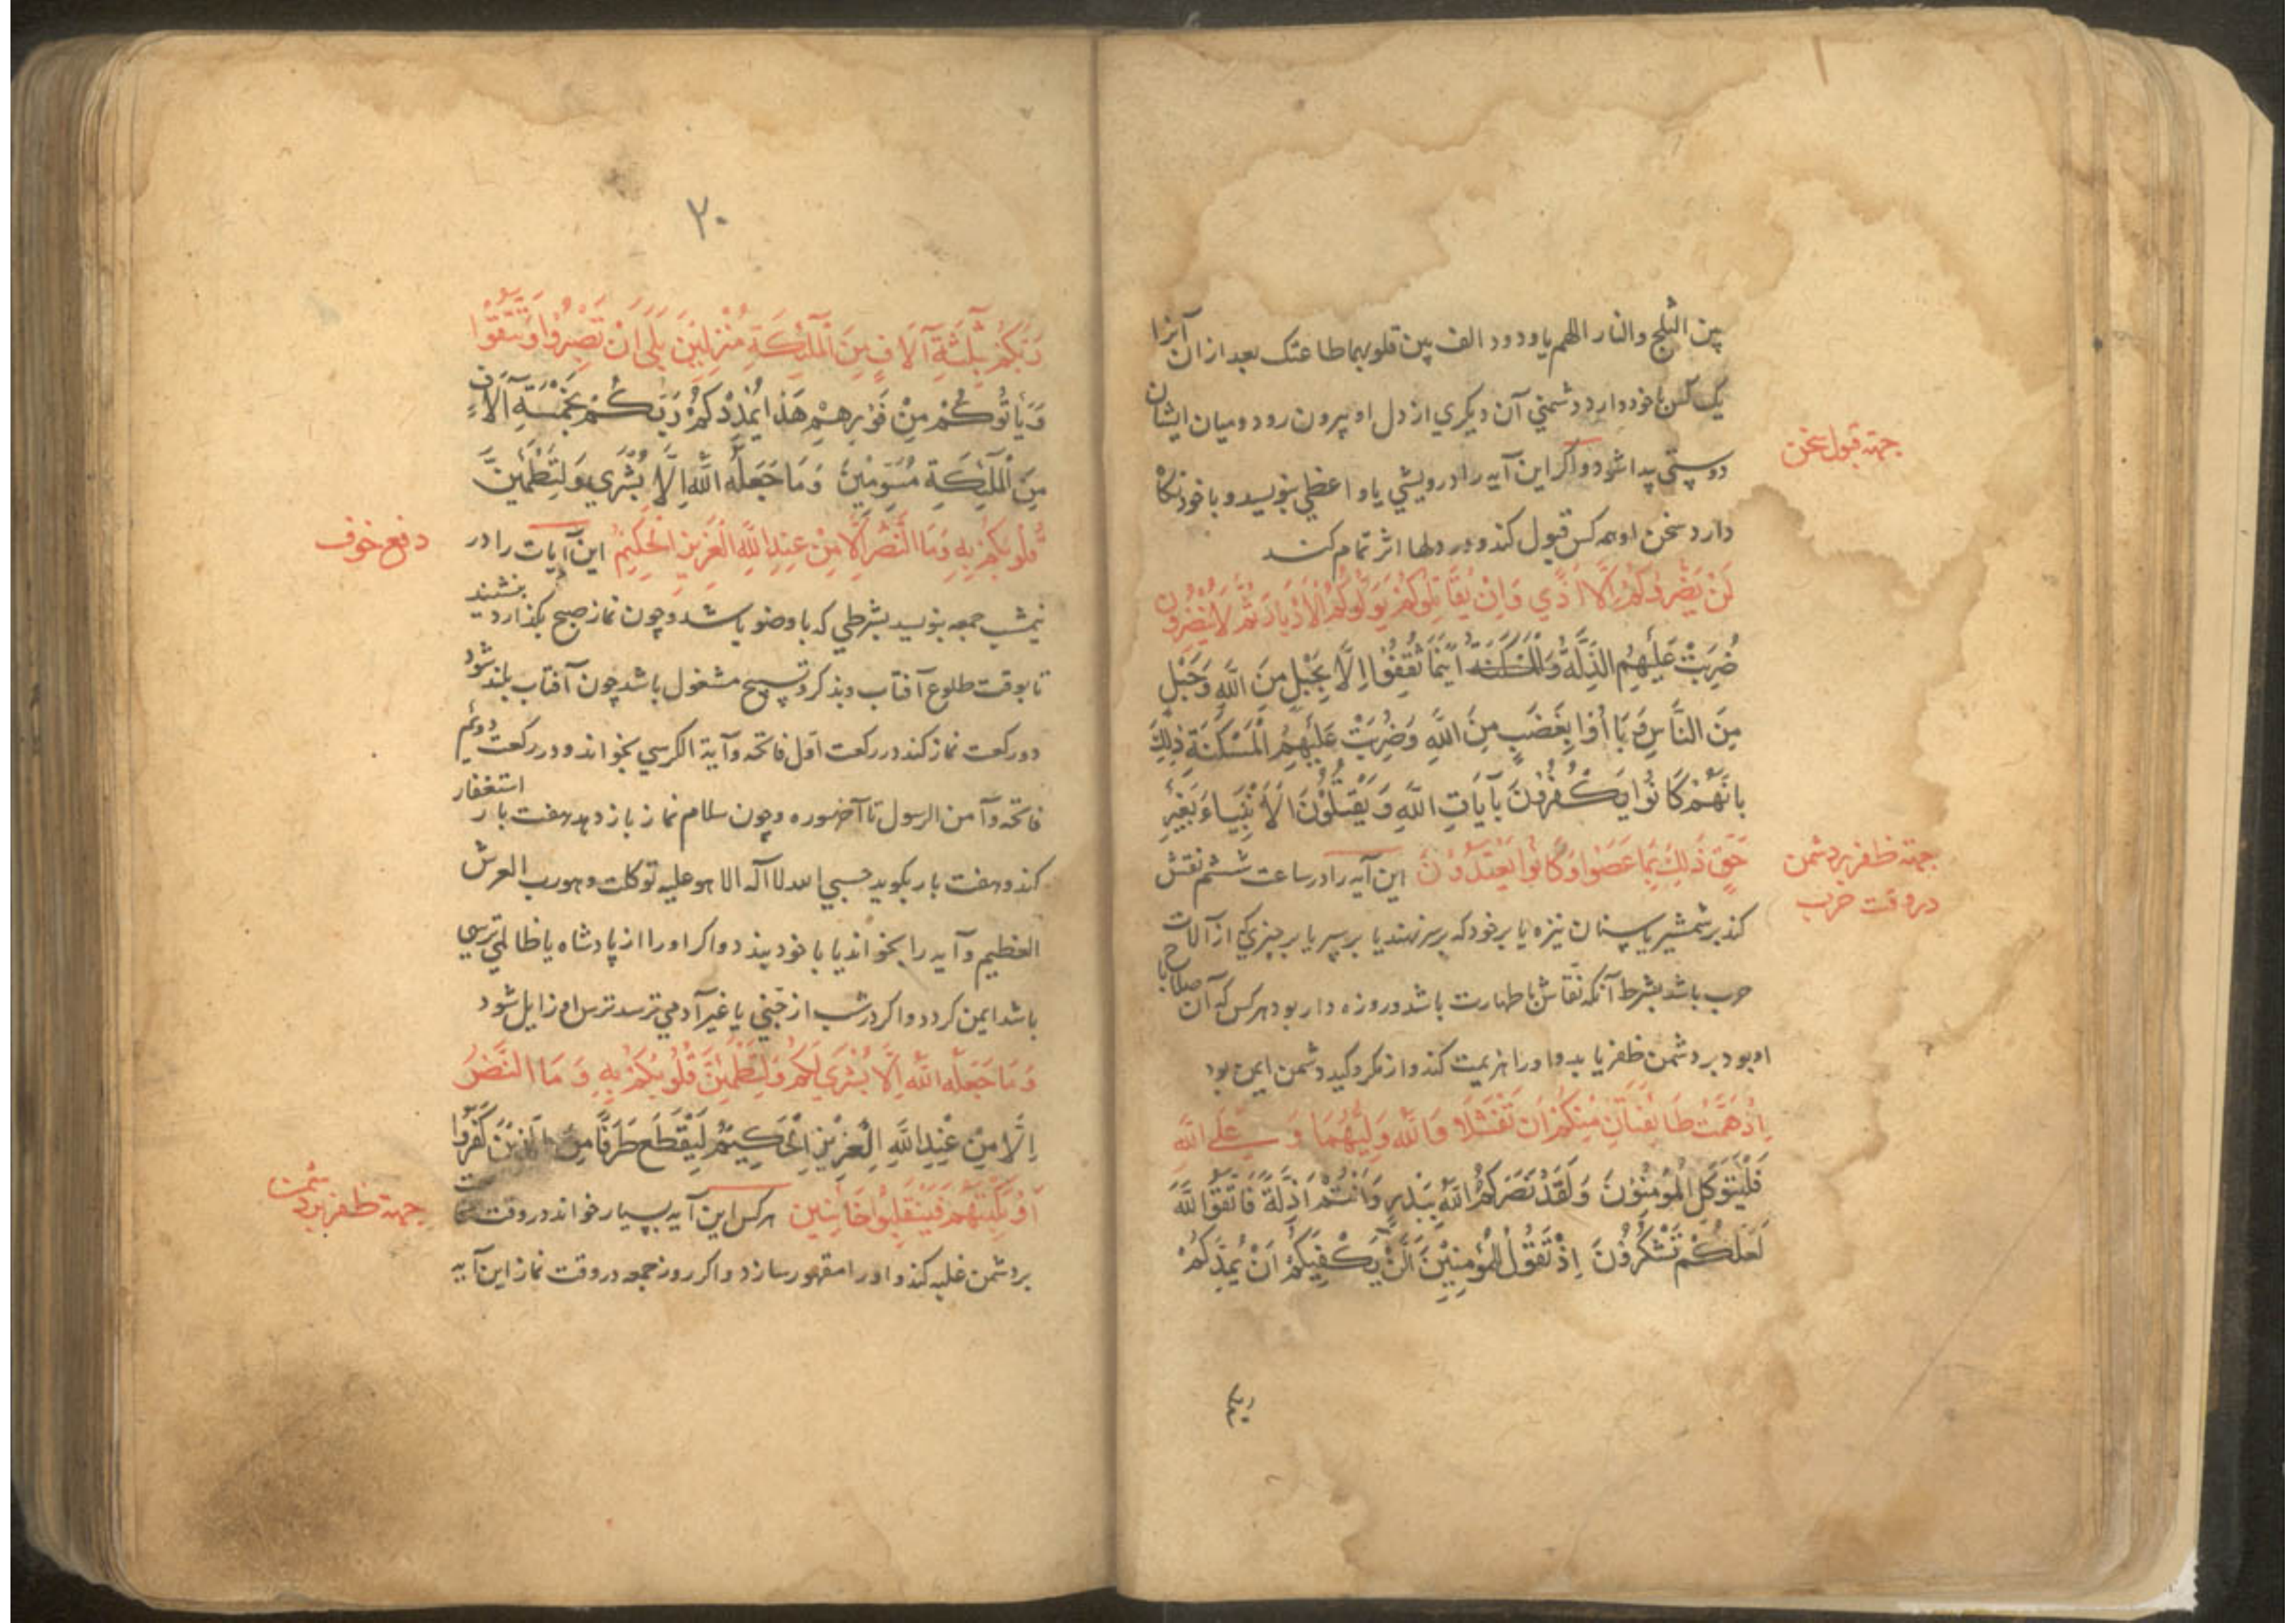 بین الثلج والنار اللهم یا ودود الف بین قلوبهما طاعتک بعد ازان آنرا
یک کس با خود دارد دشمنی آن دیکری از دل او بیرون رود و میان ایشان
دوستی پیدا شود و اکر این آیه را درویشی یا واعظی بنویسد و با خود نکاه
جهته قبول سخن
دارد سخن او همه کس قبول کند و در دلها اثر تمام کند
لَنْ يَضُرُّوكُمْ اِلَّا اَذًي وَاِنْ يُقَاتِلُوكُمْ يُوَلُّوكُمُ الْاَدْبَارَ ثُمَّ لَا يُنْصَرُونَ
ضُرِبَتْ عَلَيْهِمُ الذِّلَّةُ اَيْنَمَا ثُقِفُوا اِلَّا بِحَبْلٍ مِنَ اللّٰهِ وَحَبْلٍ
مِنَ النَّاسِ وَبَاؤُا بِغَضَبٍ مِنَ اللّٰهِ وَضُرِبَتْ عَلَيْهِمُ الْمَسْكَنَةِ ذٰلِكَ
بِاَنَّهُمْ كَانُوا يَكْفُرُونَ بِآيَاتِ اللّٰهِ وَيَقْتُلُونَ الْاَنْبِيَاءَ بِغَيْرِ
حَقٍّ ذٰلِكَ بِمَا عَصَوْا وَكَانُوا يَعْتَدُونَ این آیه را در ساعت ششم نقش
جهته ظفر بر دشمن
در وقت حرب
کند بر شمشیر یا سنان نیزه یا بر خود که بر سر نهند یا بر سپر یا بر چیزی که از آلات
حرب باشد بشرط آنکه نقاش با طهارت باشد و روزه دار بود هر کس که آن سلاح با
او بود بر دشمن ظفر یابد و او را هزیمت کند و از مکر و کید دشمن ایمن بود
اِذْ هَمَّتْ طَائِفَتَانِ مِنْكُمْ اَنْ تَفْشَلَا وَاللّٰهُ وَلِيُّهُمَا وَ عَلَي اللّٰهِ
فَلْيَتَوَكَّلِ الْمُؤْمِنُونَ وَلَقَدْ نَصَرَكُمُ اللّٰهُ بِبَدْرٍ وَاَنْتُمْ اَذِلَّةٌ فَاتَّقُوا اللّٰهَ
لَعَلَّكُمْ تَشْكُرُونَ اِذْ تَقُولُ لِلْمُؤْمِنِيْنَ اَلَنْ يَكْفِيَكُمْ اَنْ يُمِدَّكُمْ
۲۰
رَبُّكُمْ بِثَلٰثَةِ آلَافٍ مِنَ الْمَلٰئِكَةِ مُنْزَلِيْنَ بَلَي اِنْ تَصْبِرُوا وَتَتَّقُوا
وَيَأْتُوكُمْ مِنْ فَوْرِهِمْ هٰذَا يُمْدِدْكُمْ رَبُّكُمْ بِخَمْسَةِ آلَافٍ
مِنَ الْمَلٰئِكَةِ مُسَوِّمِيْنَ وَمَا جَعَلَهُ اللّٰهُ اِلَّا بُشْرَي وَلِتَطْمَئِنَّ
قُلُوبُكُمْ بِهِ وَمَا النَّصْرُ اِلَّا مِنْ عِنْدِ اللّٰهِ الْعَزِيزِ الْحَكِيْمِ این آیات را در
دفع خوف
نیم شب جمعه بنویسد بشرطی که با وضو باشد و چون نماز صبح بکذارد بنشیند
تا بوقت طلوع آفتاب و بذکر و تسبیح مشغول باشد چون آفتاب بلند شود
دو رکعت نماز کند در رکعت اول فاتحه و آیة الکرسی بخواند و در رکعت دوئم
فاتحه و آمن الرسول تا آخر سوره و چون سلام نماز باز دهد هفت بار استغفار
کند و هفت بار بکوید حسبی الله لا اله الا هو علیه توکلت و هو رب العرش
العظیم و آیه را بخواند یا با خود بندد و اکر او را از پادشاه یا ظالمی ترسی
باشد ایمن کردد و اکر در شب از جنی یا غیر آدمی ترسد ترس او زایل شود
وَمَا جَعَلَهُ اللّٰهُ اِلَّا بُشْرَي لَكُمْ وَلِتَطْمَئِنَّ قُلُوبُكُمْ بِهِ وَمَا النَّصْرُ
اِلَّا مِنْ عِنْدِ اللّٰهِ الْعَزِيْزِ الْحَكِيْمِ لِيَقْطَعَ طَرَفًا مِنَ الَّذِيْنَ كَفَرُوا
اَوْ يَكْبِتَهُمْ فَيَنْقَلِبُوا خَائِبِيْنَ هر کس این آیه بسیار خواند در وقت
جهته ظفر بر دشمن
بر دشمن غلبه کند و او را مقهور سازد و اکر روز جمعه در وقت نماز این آیه